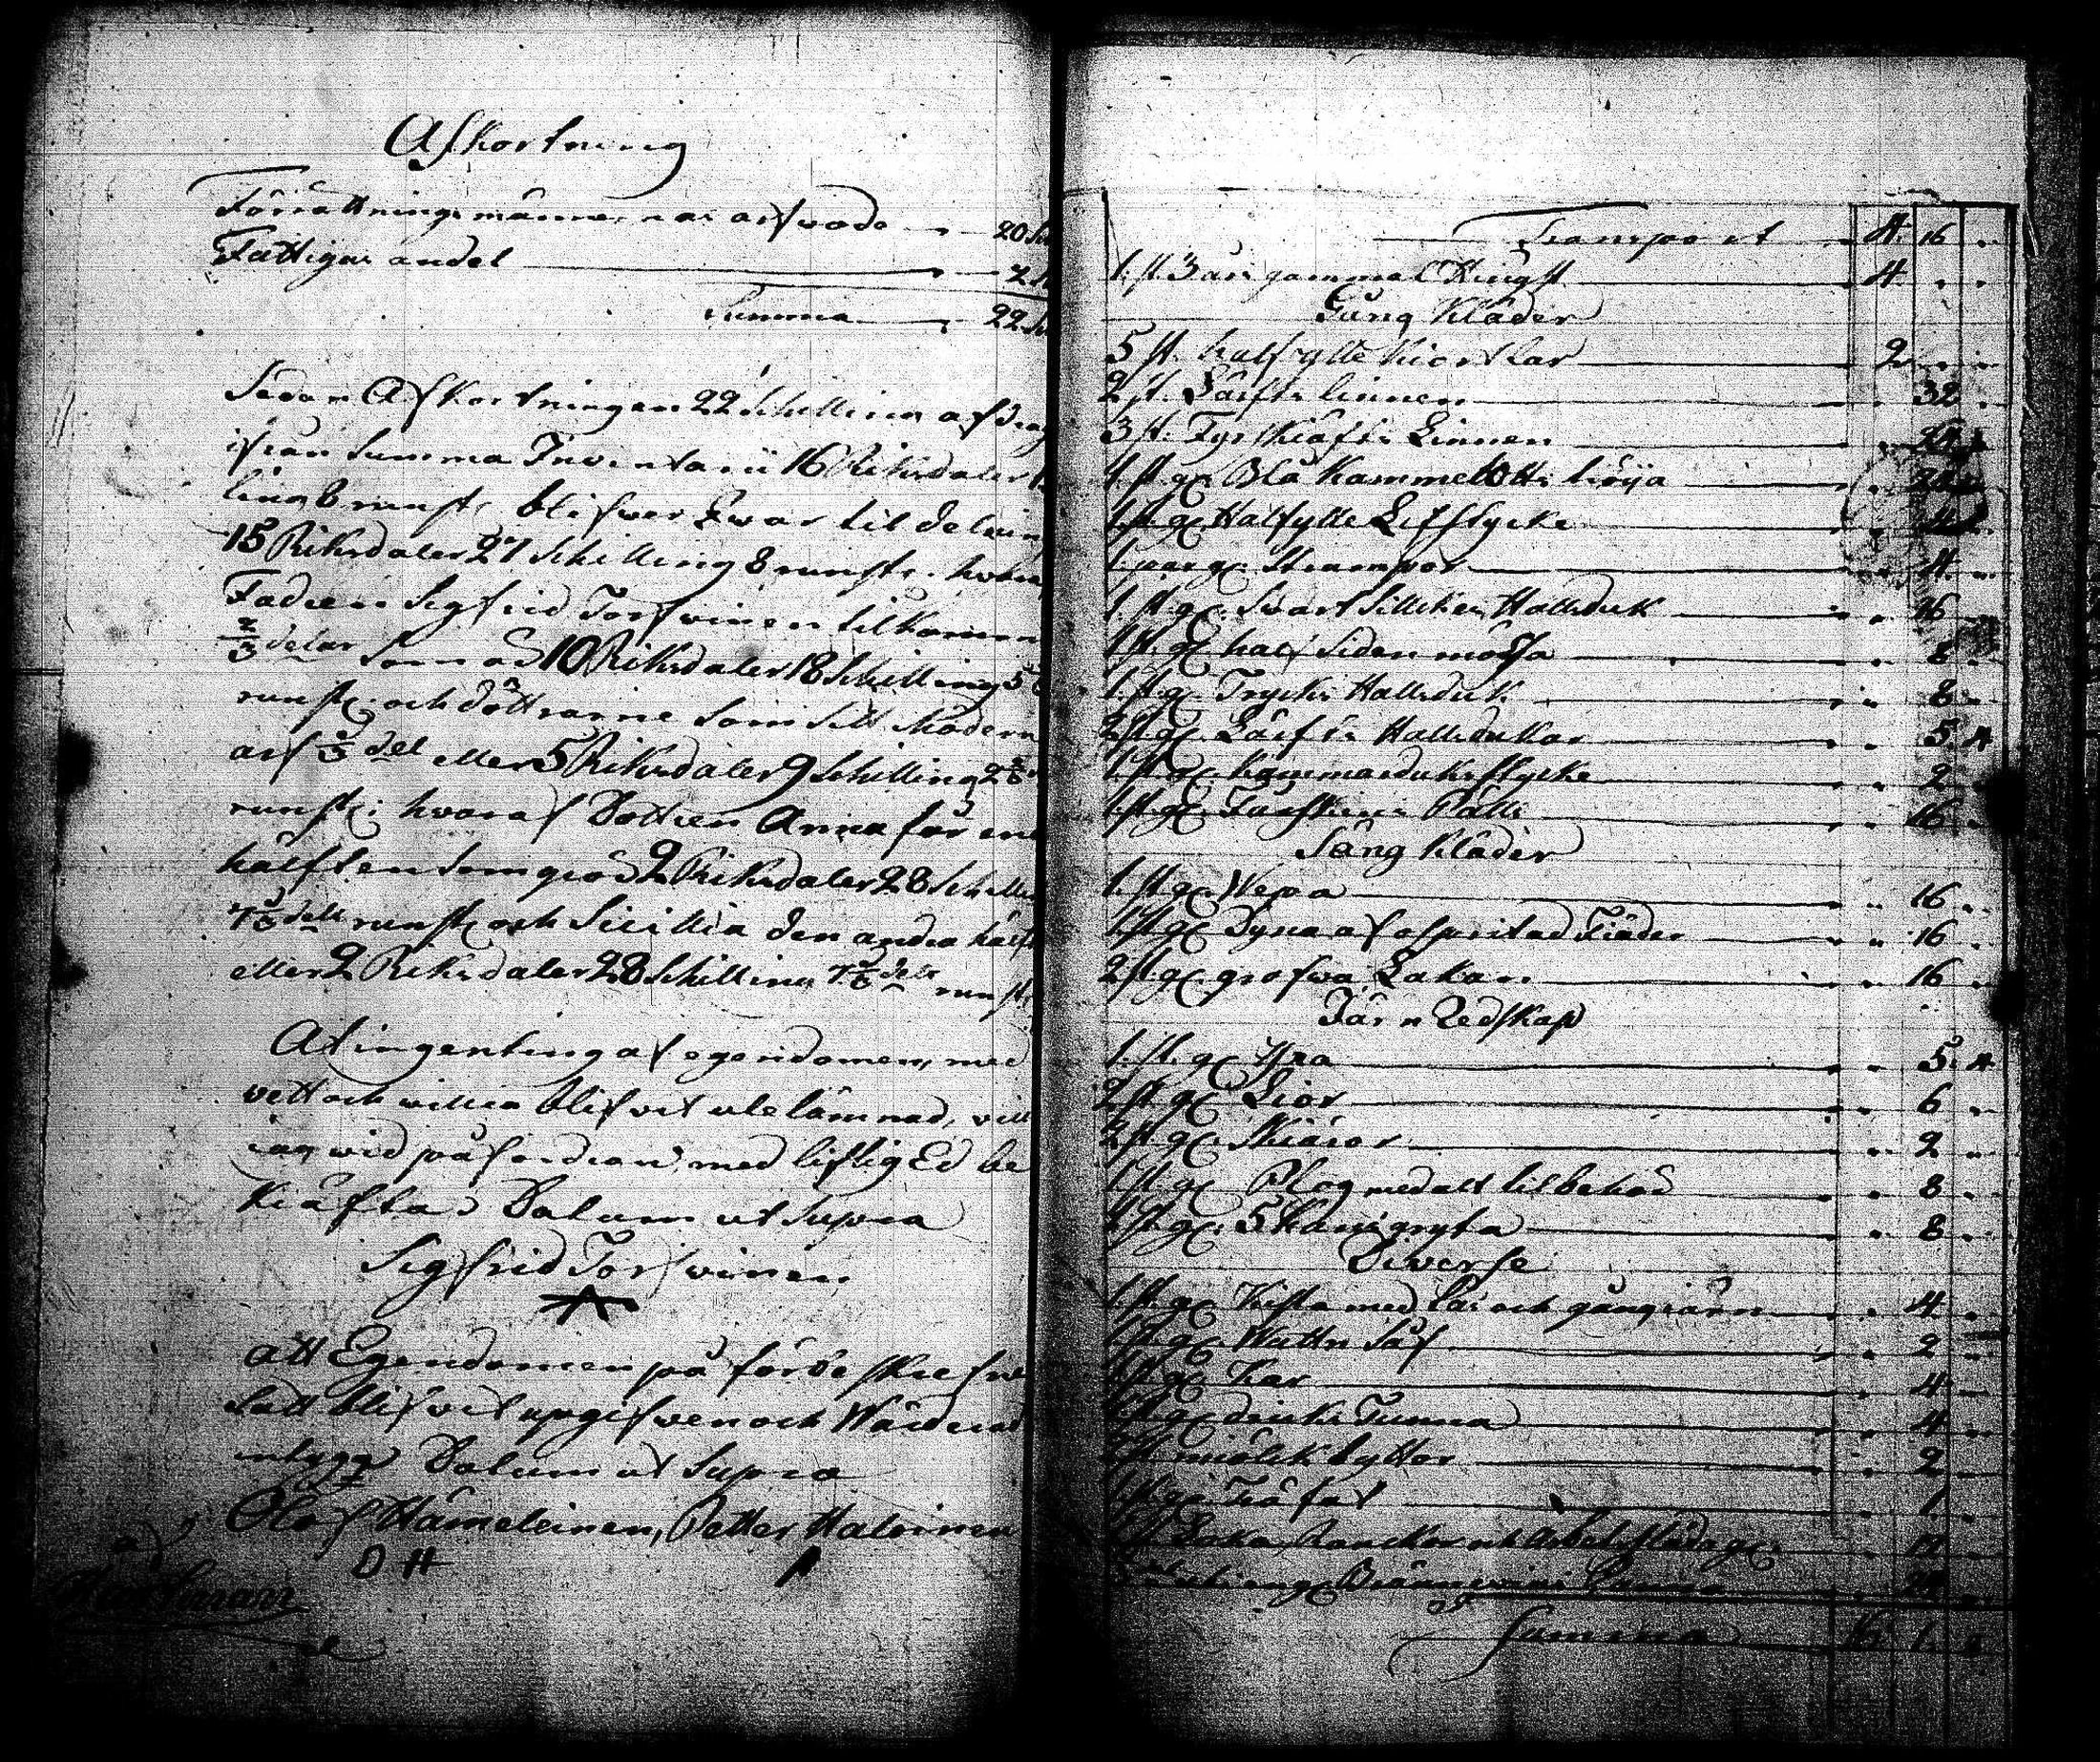 Afkortning
Förrättningsmännernas arfwode — 20 
Fattigas andel — 2
Summa — 22
Sedan Afkortningen 22 Schilling afdrag
ifrån Summa Inventarii 16 Riksdaler 1
ling 8 runst. blifwer qwar til delnin
15 Riksdaler 27 Schilling 8 runst. hwar
Fadren Sigfrid Torfwinen tilkommer
2/3 delar som är 10 Riksdaler 18 Schilling 5
runst. och döttrarne som sitt Modern
arf 1/3 del eller 5 Riksdaler 9 Schilling 2
runst. hvaraf Dottren Anna får ena
hälften som giör 2 Riksdaler 28 Schilli
7 dels runst. och Sicillia den andra hälft
eller 2 Riksdaler 28 Schilling 7 dels runst.
At ingenting af egendomen, med
vett och willia blifvit utelämnad, vill
iag wid påfordran med liflig Ed be
kräfta, Datum ut Supra
Sigfrid Torfwinen
Att Egendomen på förbe skrefne
sätt blifvit upgifwen och Wärderad
intyga Datum ut Supra
Olof Hämeleinen, Petter Haloinen
O H
Transport 4. 16 .
1 st. 3 års gammal Hingst 4 . .
Gång Kläder
5 st. halfylle Kiortlar 2 . .
2 st. Lärfts linnen . 32 .
3 st. Fyrskiäfts Linnen
1 st. gl. Blå Kammelotts tröija
1 st. gl. Halfylle Lifstycke . 4 .
1 par gl. Strumpor . 4 .
1 st. gl. Svart Silkes Halsduk . 16 .
1 st. gl. half Siden mössa . 8 .
1 st. gl. Tryckt Halsduk . 8 .
2 st. gl. Lärfts Halsdukar . 5. 4
1 st. gl. kammarduks stycke . 2 .
1 st. gl. Fårskins Pälls . 16 .
Säng Kläder
1 st. gl. Wepa . 16 .
1 st. gl. Dyna af ospritad Fiäder . 16 .
2 st. gl. grofwa Lakan . 16 .
Järn Redskap
1 st. gl. Yxa . 5. 4
2 st. gl. Lior . 6 .
2 st. gl. Skiäror . 2 .
1 st. gl. Plog med alt tilbehör . 8 .
1 st. gl. 5 kans gryta . 8 .
Diverse
1 st. gl. Kista med lås och gångiärn . 4 .
1 st. gl. Wattn Så . 2 .
1 st. gl. Kar . 4 .
1 st. gl. dricks Tunna . 4 .
2 st. miölk byttor . 2 .
1 st. gl. Träfat . 1 .
Loka, Ranckor och Arbetssläde gl.
Summa 16 1. 8